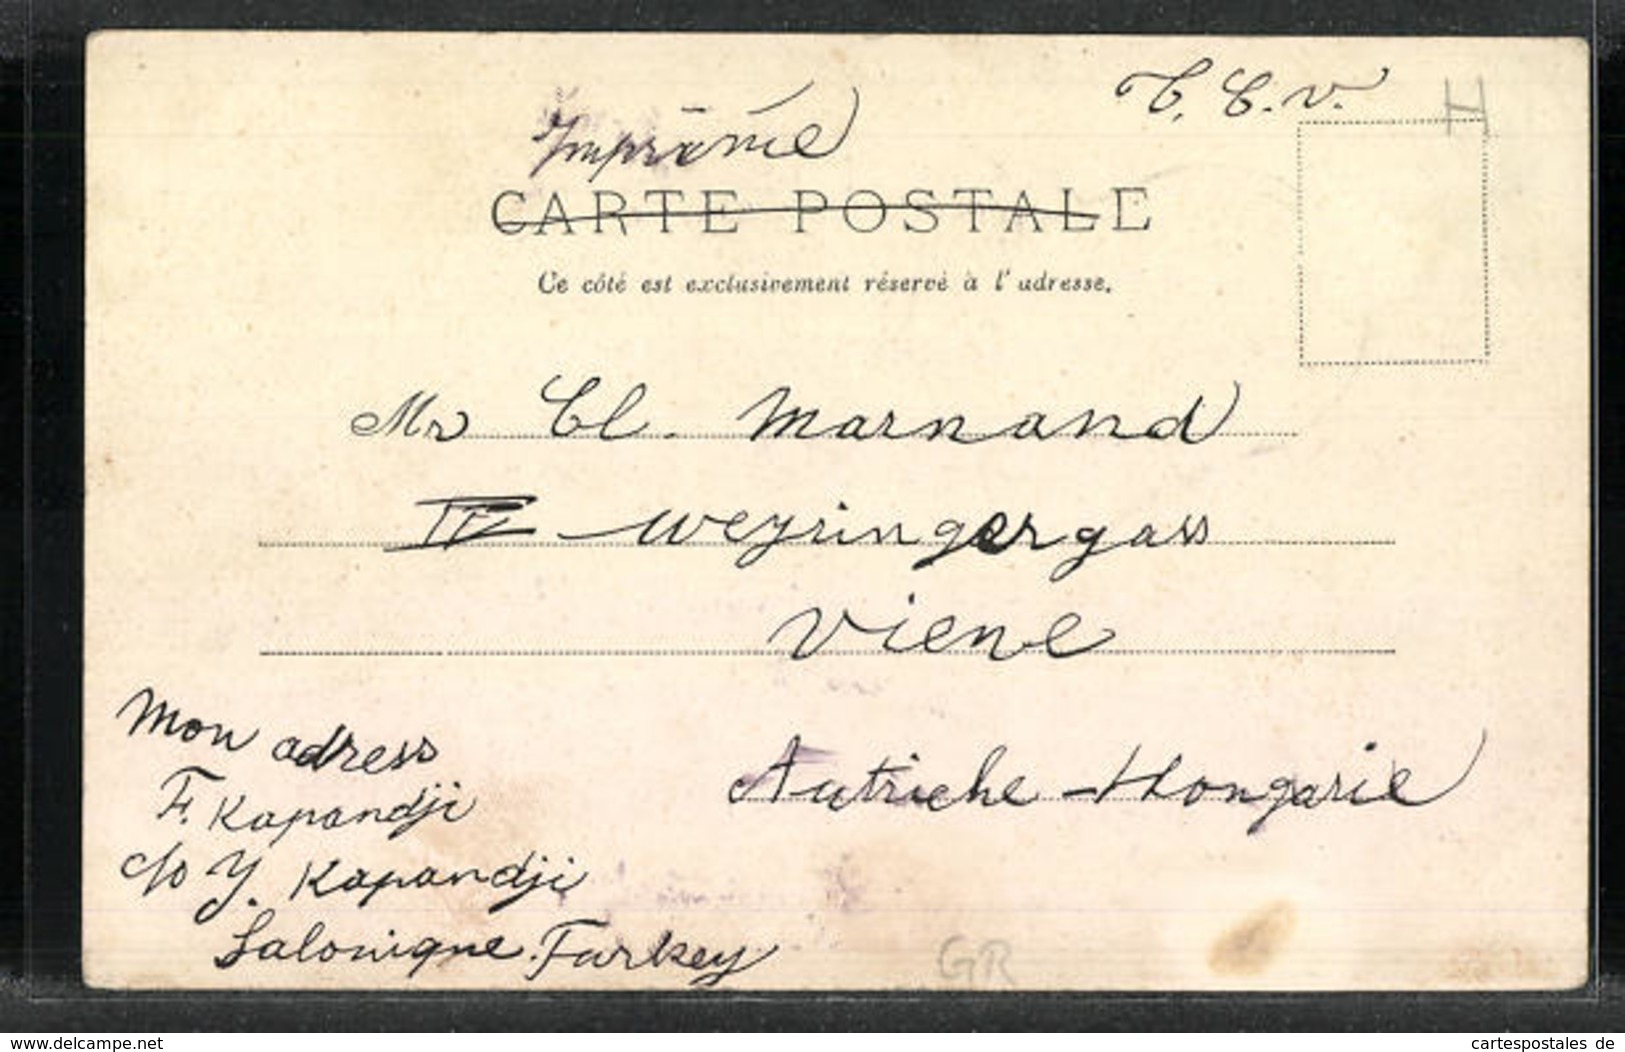 T. C. V.
H
Imprimé
CARTE POSTALE
Ce côté est exclusivement réservé à l'adresse.
Mr Cl. Marnand
IV - Weyringergass
Viene
Autriche - Hongarie
Mon adress
F. Kapandji
c/o Y. Kapandji
Salonique. Turkey
GR
www.delcampe.net
cartespostales de